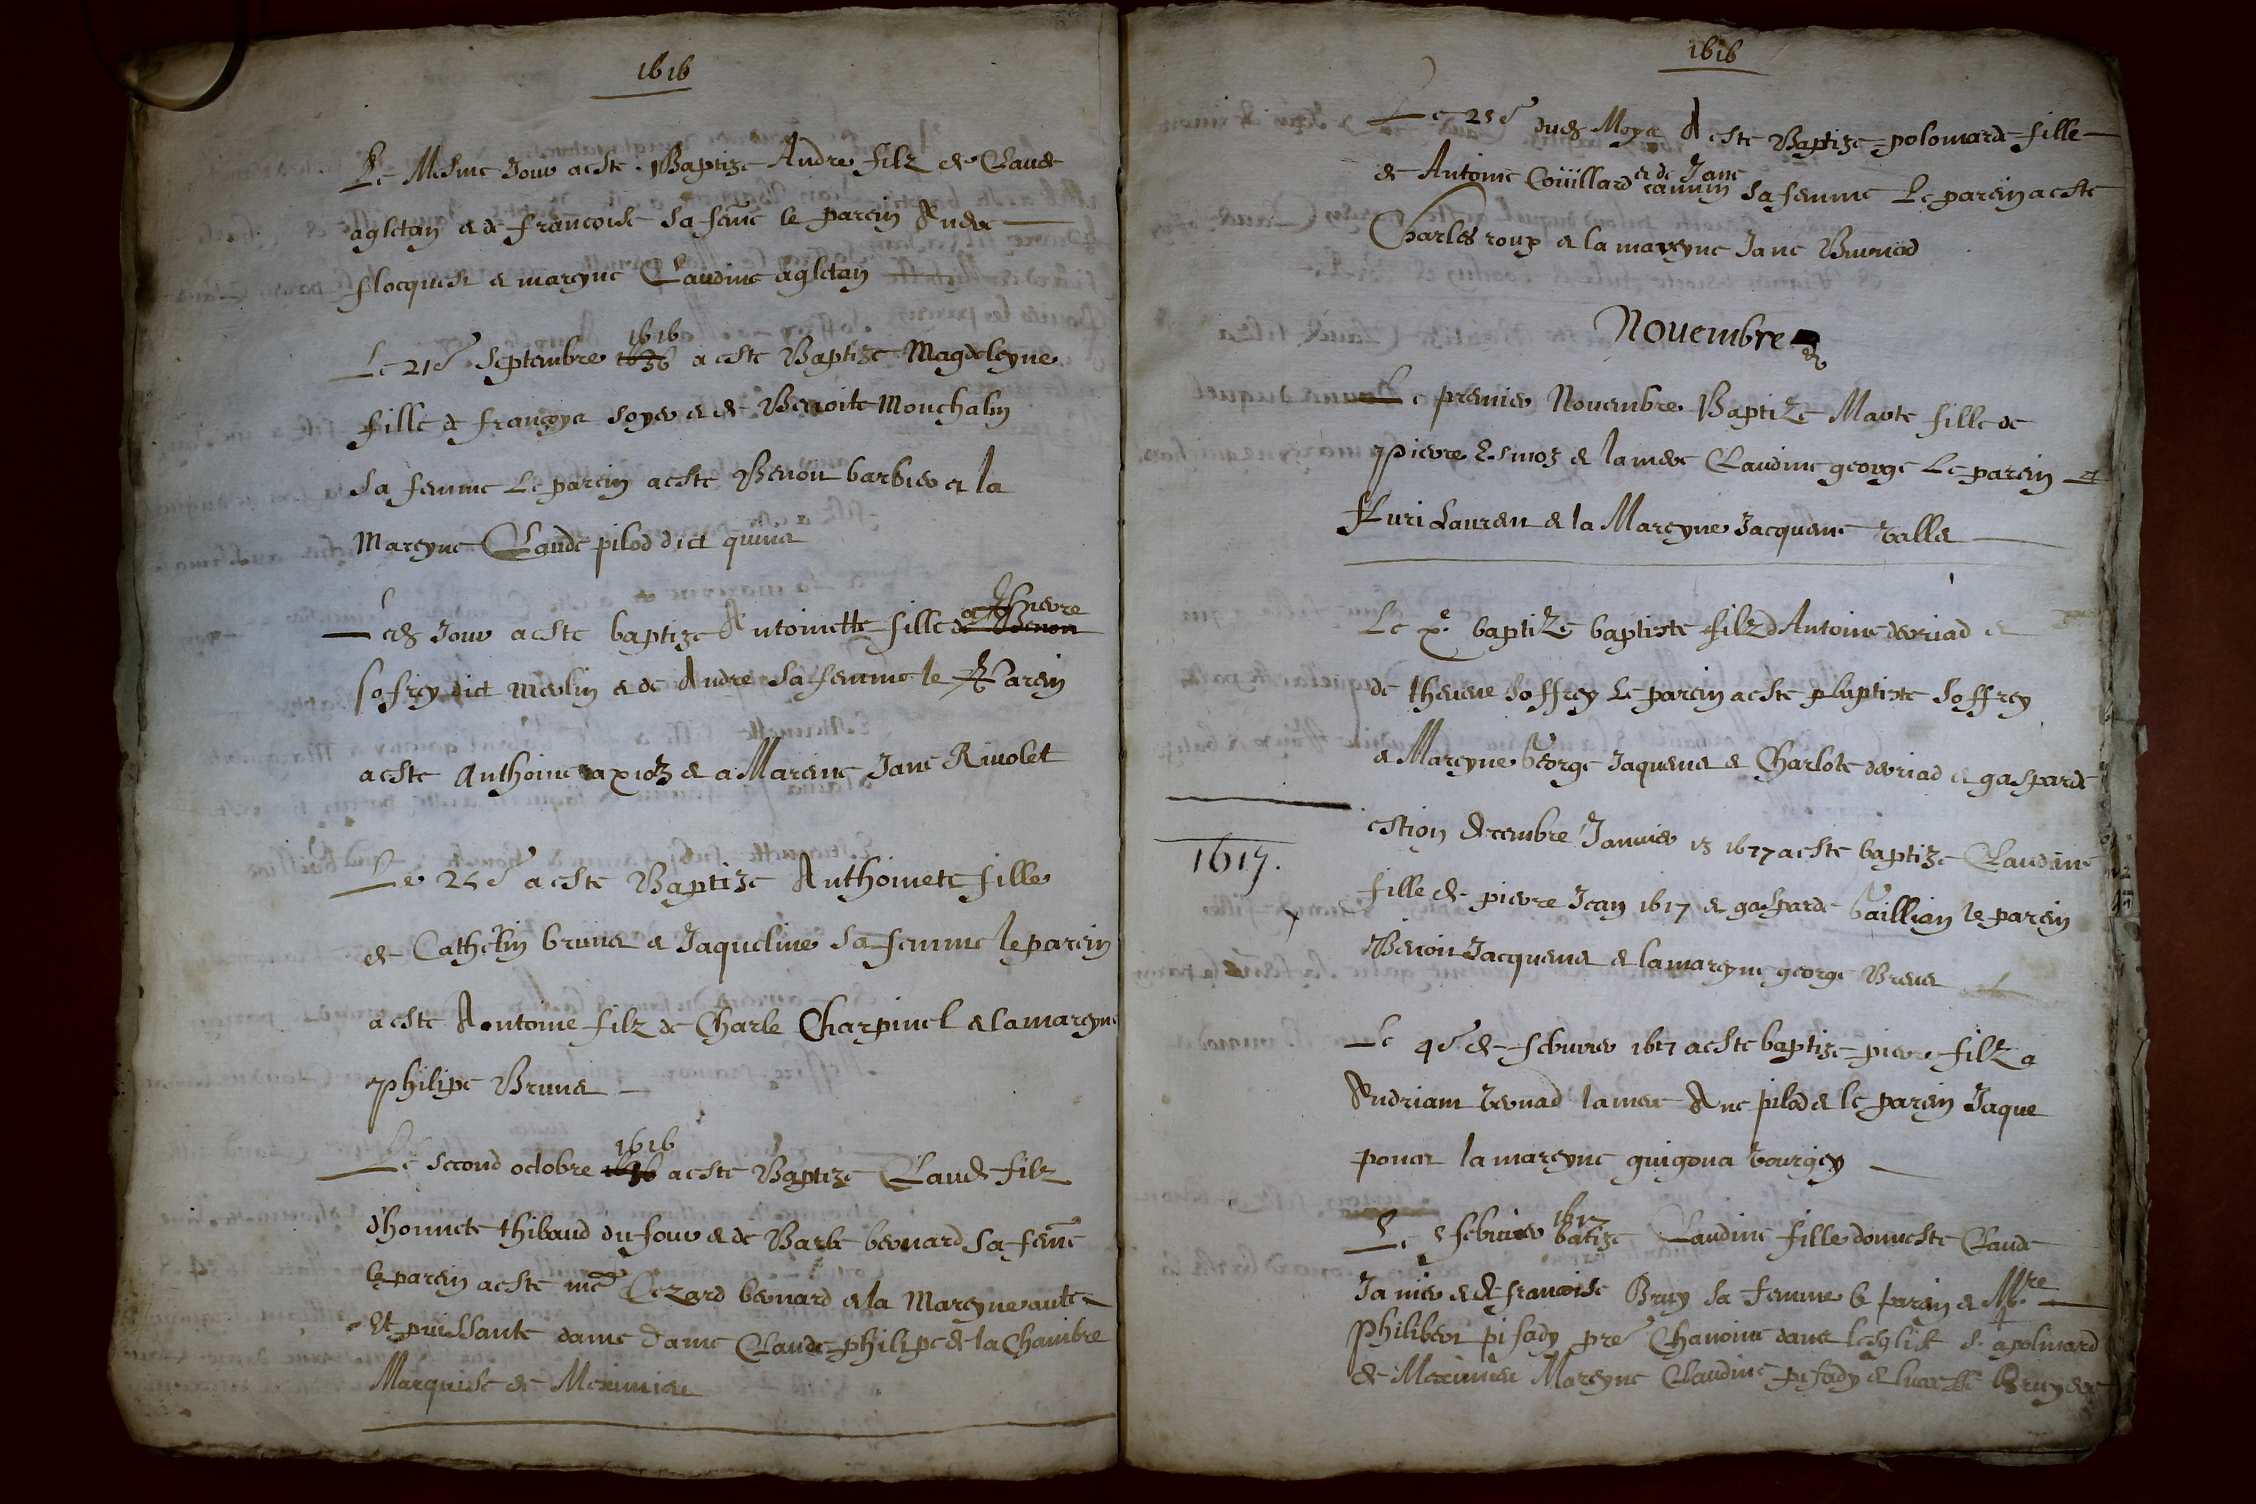 1616
Le Mesme Jour a este Baptize Andre filz de Claude
agletan e de francoise sa feme le parein Andre
flocquet e mareyne Claudine agletan
Le 21e Septembre 1616 a este Baptize Magdeleyne
fille de françoys soyer e de Benoite Monchalin
sa femme Le parein a este Benoit barbier et la
Mareyne Claude pilod dict
Led Jour a este baptize Antoinette fille de
sofrey dict Merlin e de Andre sa femme le Parein
a este Anthoine e a Mareine Jane Rivolet
Le 25e a este Baptize Anthoinete fille
de Cathelin brunet e Jaqueline sa femme le parein
a este Antoine filz de Charle Charpinel e la mareyne
Philipe Brunet
Le second octobre 1616 a este Baptize Claude filz
d'honnete thibaud du four e de Barbe bernard sa feme
le parein a este Cezard bernard e la Mareyne aute
Et puissante dame Dame Claude philipe de la Chambre
Marquise de Meximieu
1616
Le 25e dud Moys A este Baptize polomarde fille
de Antoine Coüillard e de Jane sa femme Le parein a este
Charles roux e la mareyne Jane
Novembre
Le premier Novembre Baptizé Marte fille de
Pierre e la mere Claudine george Le parein
Lauren e la Mareyne Jacqueme
Le x.e baptizé baptiste filz d Antoine devriad e
de theuene Soffrey Le parein a este baptiste Soffrey
e Mareyne George Jaquemet e Charlote devriad e gasparde
Janvier 13 1617 a este baptize Claudine
1617.
fille de pierre Jean 1617 e gasparde le parein
Benoit Jacquemet e la mareyne george
Le 4e de febvrier 1617 a este baptize pierre filz a
Andriam la mere Ane pilod e le parein Jaque
poncet la mareyne guigona
Le febvrier 1617 batize Claudine fille donneste Claude
Janier e de francoise Bruy sa femme le parein e Mre
Philibert pisady pre Chanoine dans leglise S. apolinard
de Meximieu Mareyne Claudine pisady